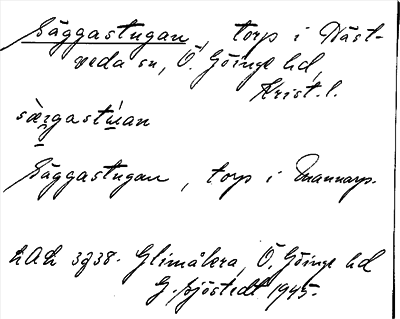 Säggastugan, torp i Näst-
veda sn, Ö. Göinge hd,
Krist. l.
sæ̀rgastúan
Säggastugan, torp i Mannarp.
LAL 3738. Glimåkra, Ö. Göinge hd
G. Sjöstedt 1945.